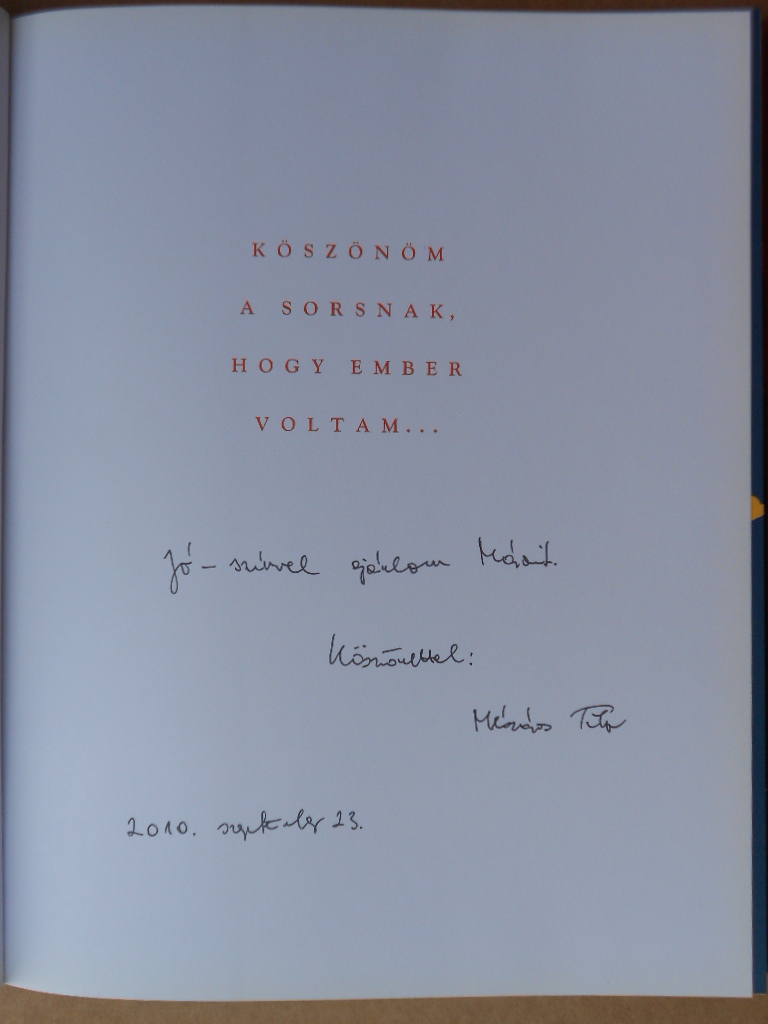 KÖSZÖNÖM
A SORSNAK,
HOGY EMBER
VOLTAM...
Jó-szívvel ajánlom
Köszönettel:
Mészáros
2010. szeptember 23.